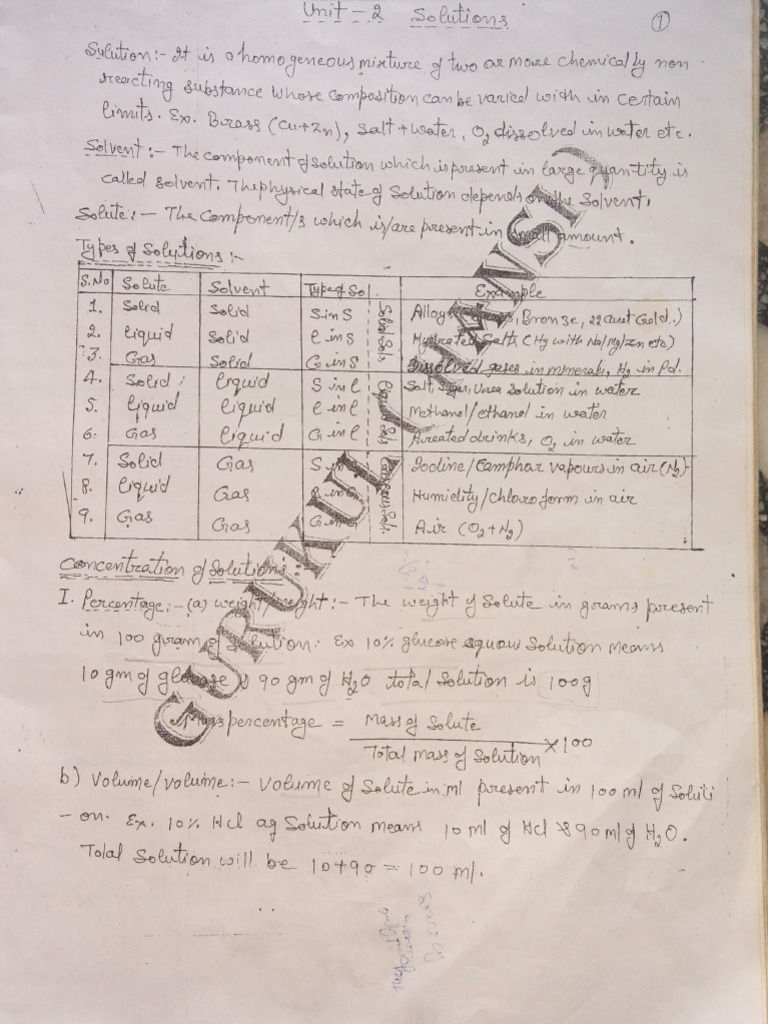 Unit - 2 Solutions
①
Solution:- It is a homogeneous mixture of two or more chemically non -
reacting substance whose composition can be varied with in certain
limits. Ex. Brass (Cu+Zn), Salt + water, O2 dissolved in water etc.
Solvent:- The component of solution which is present in large quantity is
called solvent. The physical state of solution depends on the solvent.
Solute:- The Component/s which is/are present in small amount.
Types of Solutions:-
S.No Solute Solvent Type of Sol. Example
1. Solid Solid S in S Alloys Bronze, 22 caret Gold..)
2. liquid Solid l in S Hydrated Salts (Hg with Na/Mg/Zn etc)
3. Gas Solid G in S Dissolved gases in minerals, H2 in Pd.
Solid Sols
4. Solid liquid S in l Salt, Sugar, Urea Solution in water
5. liquid liquid l in l Methanol/ethanol in water
6. Gas liquid G in l Areated drinks, O2 in water
liquid Sols
7. Solid Gas S in Iodine/Camphar vapours in air (N2)
8. liquid Gas l in G Humidity/chloroform in air
9. Gas Gas G in G Air (O2+N2)
Gaseous Sol.
Concentration of Solutions:-
I. Percentage:- (a) weight/weight:- The weight of Solute in grams present
in 100 gram of Solution. Ex 10% glucose aquow Solution means
10 gm of glucose & 90 gm of H2O total Solution is 100g
Mass percentage = Mass of Solute / Total mass of Solution × 100
b) Volume/volume:- Volume of Solute in ml present in 100 ml of Soluti
- on. Ex. 10% Hcl aq Solution means 10 ml of Hcl & 90 ml of H2O.
Total Solution will be 10+90 = 100 ml.
GURUKUL (HANSI)